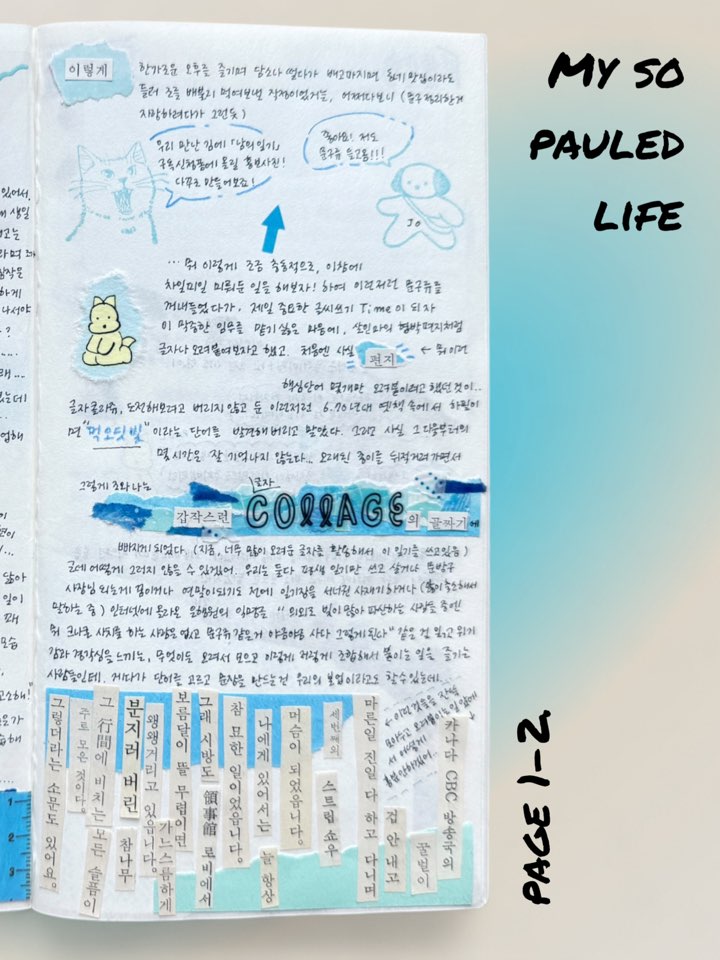 MY SO
PAULED
LIFE
PAGE 1-2
이렇게
한가로운 오후를 즐기며 담소나 떨다가 배고파지면 동네 맛집이라도
들러 조금 배불리 먹여보낼 작정이었거늘, 어쩌다보니 (문구정리한게
자랑하려다가 그런듯)
우리 만난 김에 「남의 일기」
구독신청폼에 올릴 홍보사진!
다꾸로 만들어보죠!
좋아요! 저도
문구류 들고옴!!!
Jo
... 뭐 이렇게 조금 충동적으로, 이참에
차일피일 미뤄둔 일을 해보자! 하여 이런저런 문구류를
꺼내들었다가, 제일 중요한 글씨쓰기 Time이 되자
이 막중한 임무를 맡기 싫은 마음에, 살인마의 협박편지처럼
글자나 오려붙여보자고 했고. 처음엔 사실 편지 ← 뭐 이런
핵심단어 몇개만 오려붙이려고 했던 것이..
글자콜라쥬, 도전해보려고 버리지 않고 둔 이런저런 6.70년대 옛책 속에서 하필이
면 "먹오딧빛" 이라는 단어를 발견해버리고 말았다. 그리고 사실 그 다음부터의
몇 시간은 잘 기억나지 않는다... 오래된 종이를 뒤적거려가면서
그렇게 조와나는
글자
갑작스런 COLLAGE의 골짜기에
빠지게 되었다. (지금, 너무 많이 오려둔 글자를 활용해서 이 일기를 쓰고있음)
근데 어떻게 그러지 않을 수 있겠어. 우리는 둘다 평생 일기만 쓰고 살거나 문방구
사장님 되는게 꿈이거나 연말이되기도 전에 일기장을 서너권 사재기하거나 (많이 축소해서
말하는 중) 인터넷에 올라온 은행원의 익명글 "의외로 빚이 많아 파산하는 사람들 중엔
뭐 크나큰 사치를 하는 사람은 없고 문구류같은거 야금야금 사다 그렇게 된다" 같은 걸 읽고 위기
감과 경각심을 느끼는, 무엇이든 오려서 모으고 이렇게 저렇게 조합해서 붙이는 일을 즐기는
사람들인데. 게다가 단어를 고르고 문장을 만드는건 우리의 본업이라고도 할수있는데..
← 이런 것들을 잔뜩
모아두고 오려붙이는 일 앞에
서 어떻게
흥분 안하겠어..
카나다 CBC 방송국의
꿀벌이
겁 안 내고
마른일 진일 다 하고 다니며
세번째의
스트립 쇼우
머슴이 되었읍니다.
나에게 있어서는
늘 항상
참 묘한 일이었읍니다.
그래 시방도
領事館 로비에서
보름달이 뜰 무렵이면
가느스름하게
왱왱거리고 있읍니다.
분지러 버린
참나무
그 行間에 비치는 모든 슬픔이
주토 모은 것이다.
그렇더라는 소문도 있어요.
1
2
3